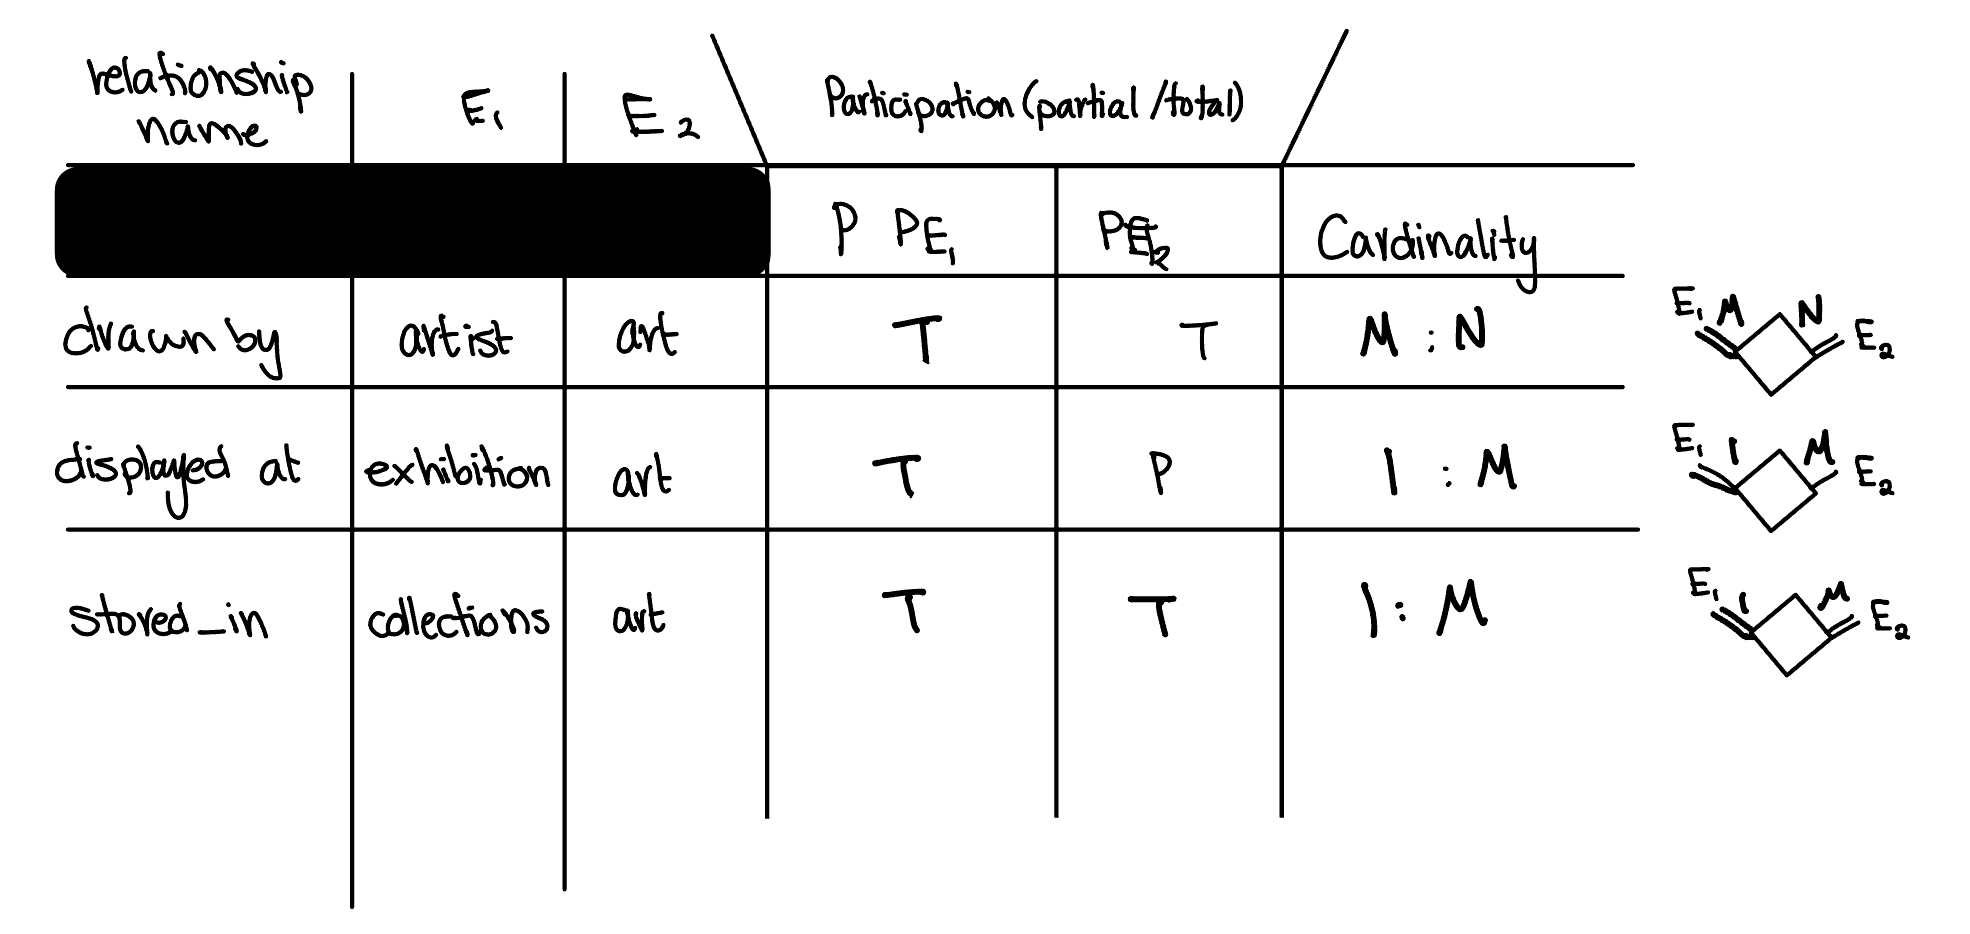 relationship name E₁ E₂ Participation (partial/total)
P PE₁ PE₂ Cardinality
drawn by artist art T T M : N E₁ M N E₂
displayed at exhibition art T P 1 : M E₁ 1 M E₂
stored_in collections art T T 1 : M E₁ 1 M E₂